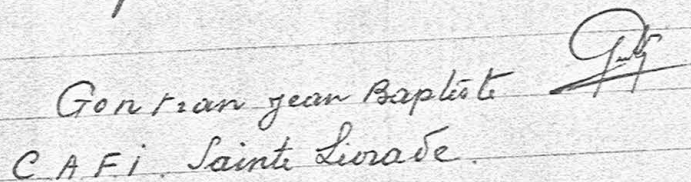 Gontran Jean Baptiste
C A F i. Sainte Livrade.